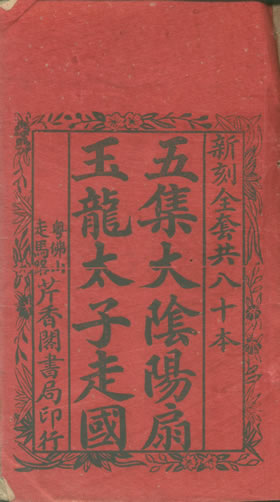 新刻全套共八十本
五集大陰陽扇
玉龍太子走國
粵佛山
走馬路
芹香閣書局印行